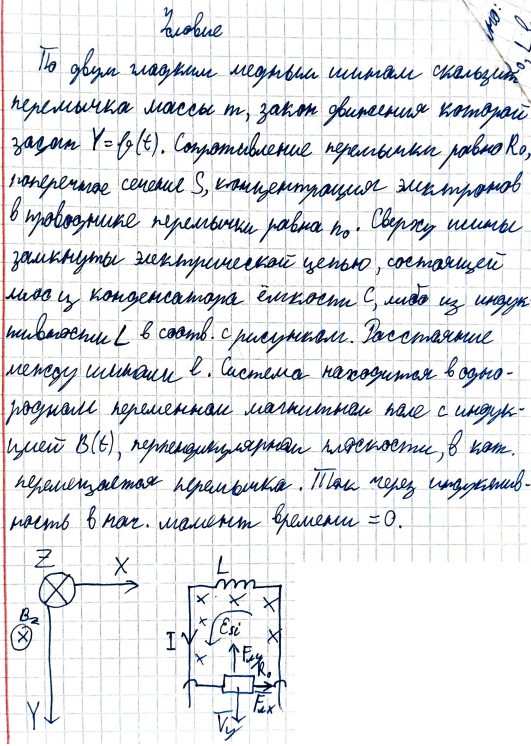 Условие
По двум гладким медным шинам скользит
перемычка массы m, закон движения которой
задан Y=f_y(t). Сопротивление перемычки равна R₀,
поперечное сечение S, концентрация электронов
в проводнике перемычки равна n₀. Сверху шины
замкнуты электрической цепью, состоящей
либо из конденсатора ёмкости C, либо из индук
тивности L в соотв. с рисунком. Расстояние
между шинами l. Система находится в одно-
родном переменном магнитном поле с индук-
цией B(t), перпендикулярной плоскости, в кот.
перемещается перемычка. Ток через индуктив-
ность в нач. момент времени = 0.
Z X
Bz
Y
L
I
Esi
Fлy
R₀
Fлx
Vy